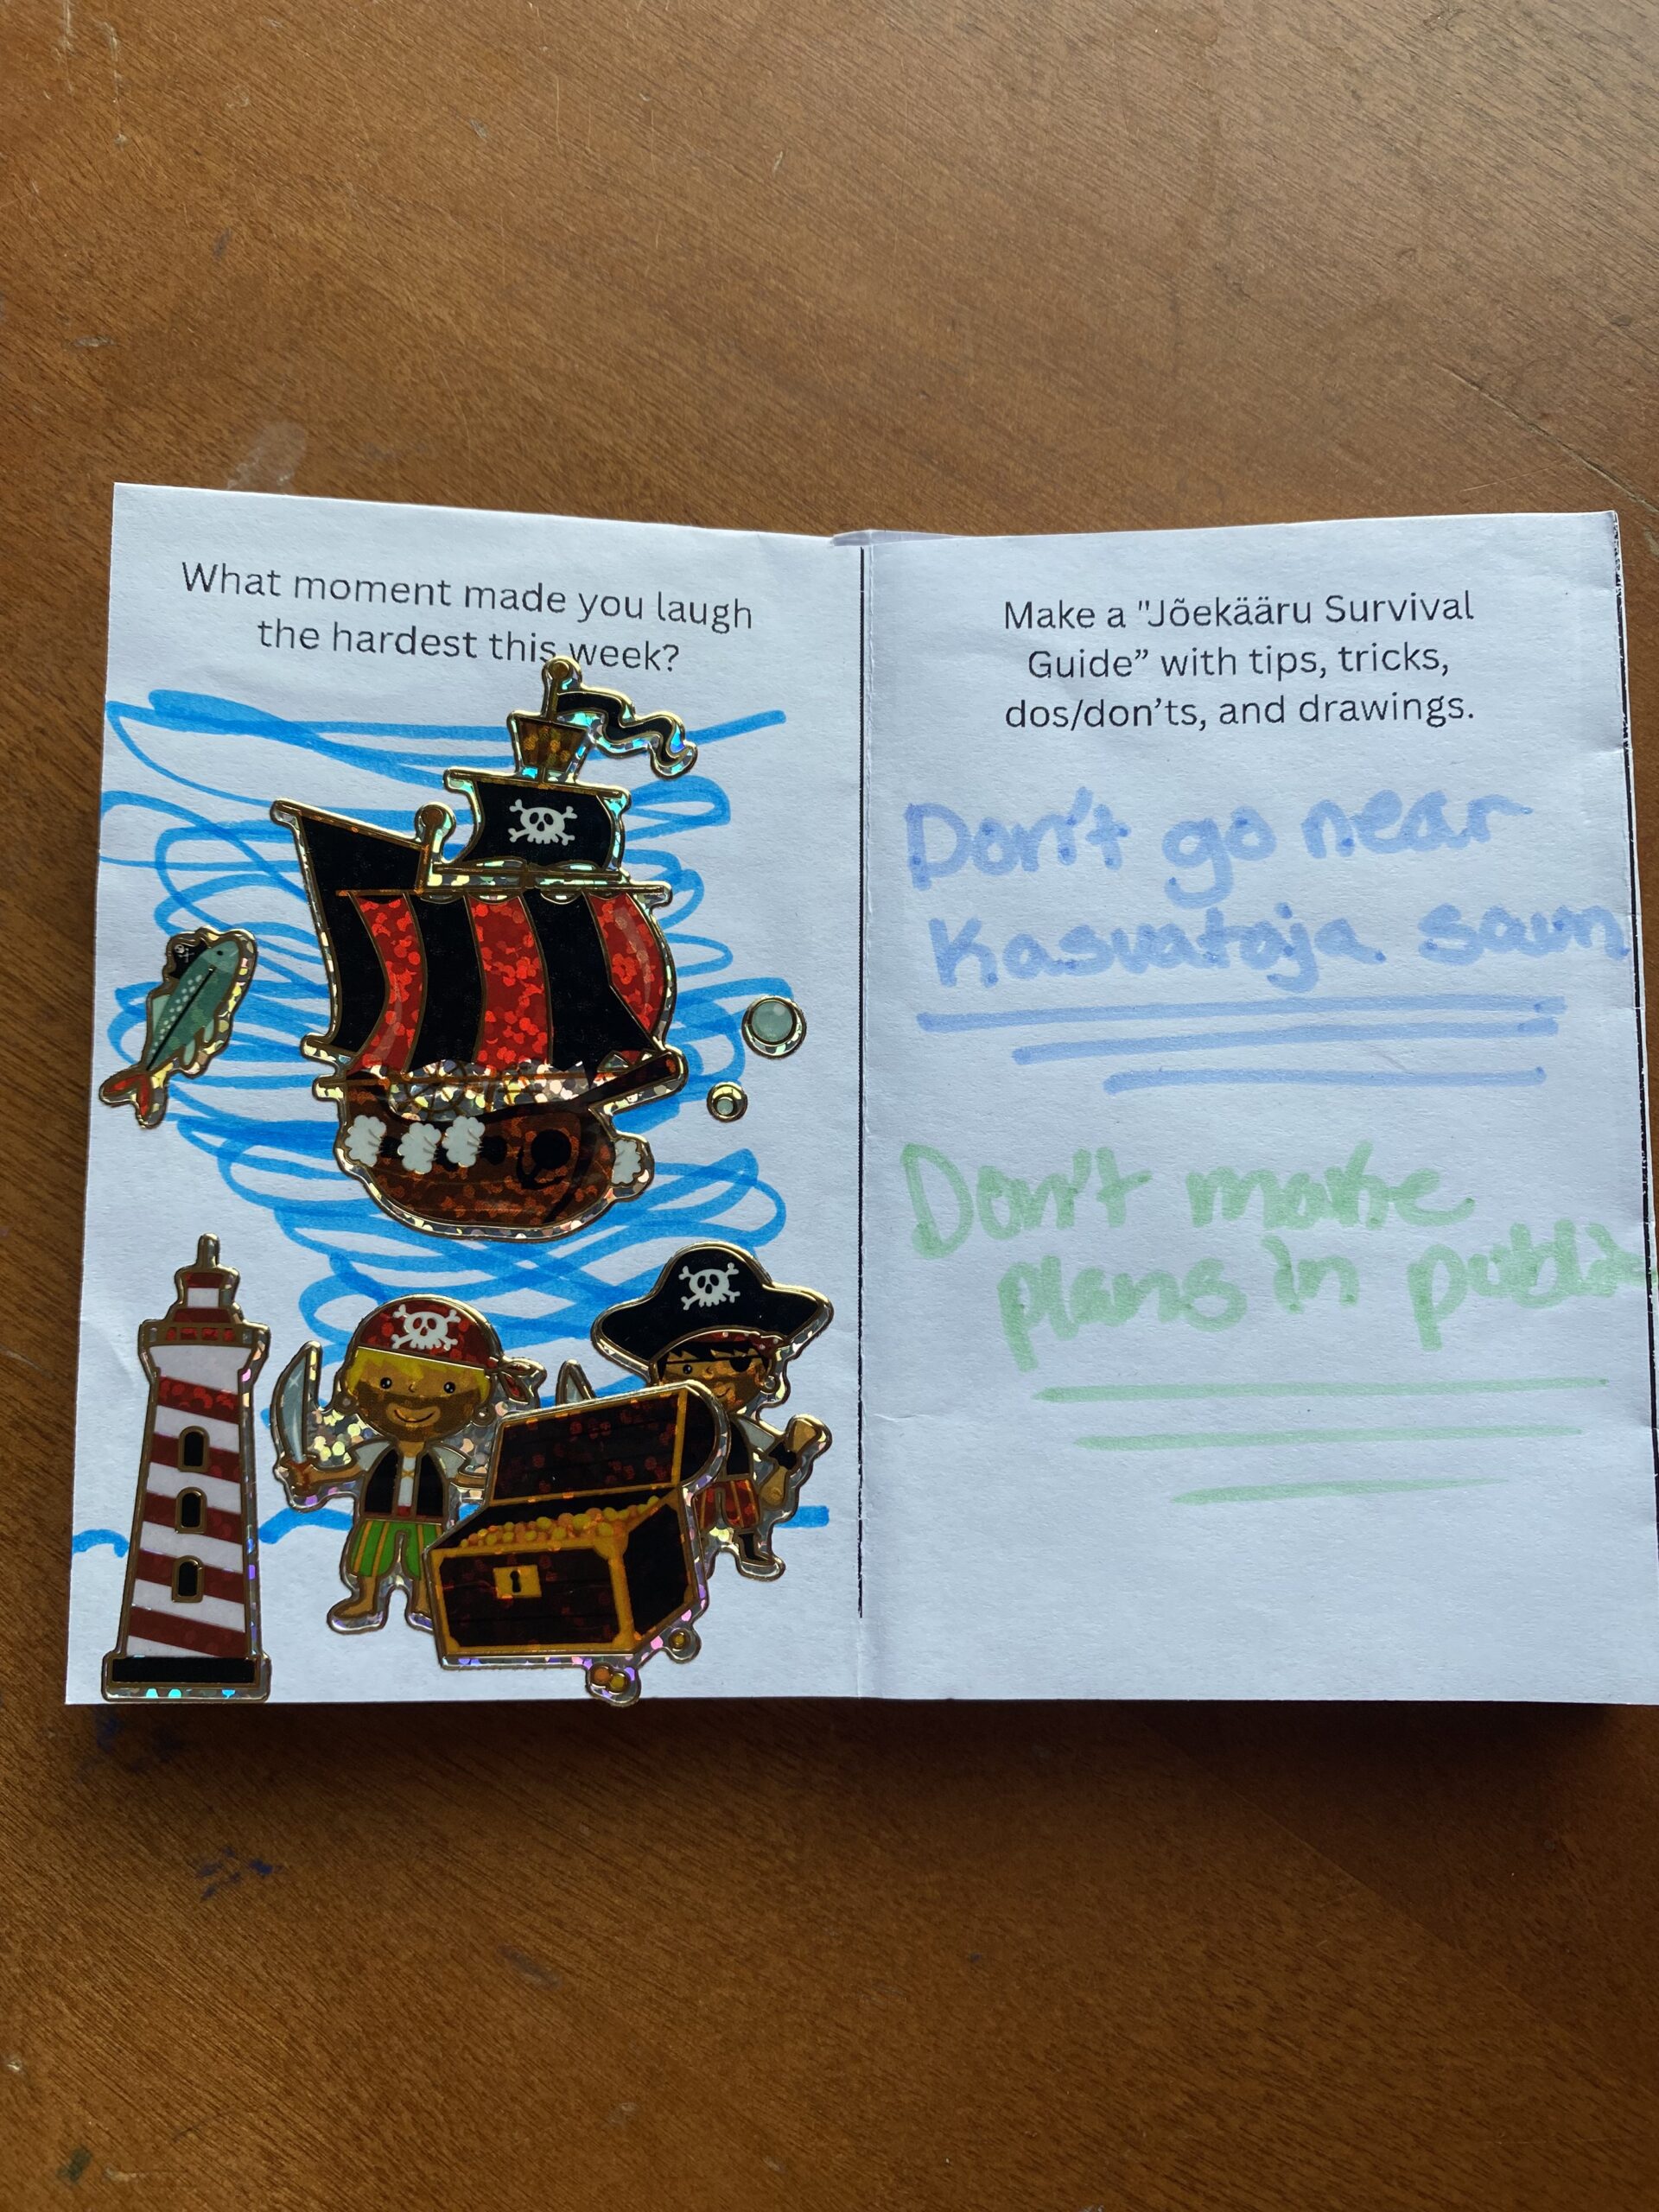 What moment made you laugh
the hardest this week?
Make a "Jõekääru Survival
Guide” with tips, tricks,
dos/don’ts, and drawings.
Don't go near
Kasvataja saun
Don't make
plans in public